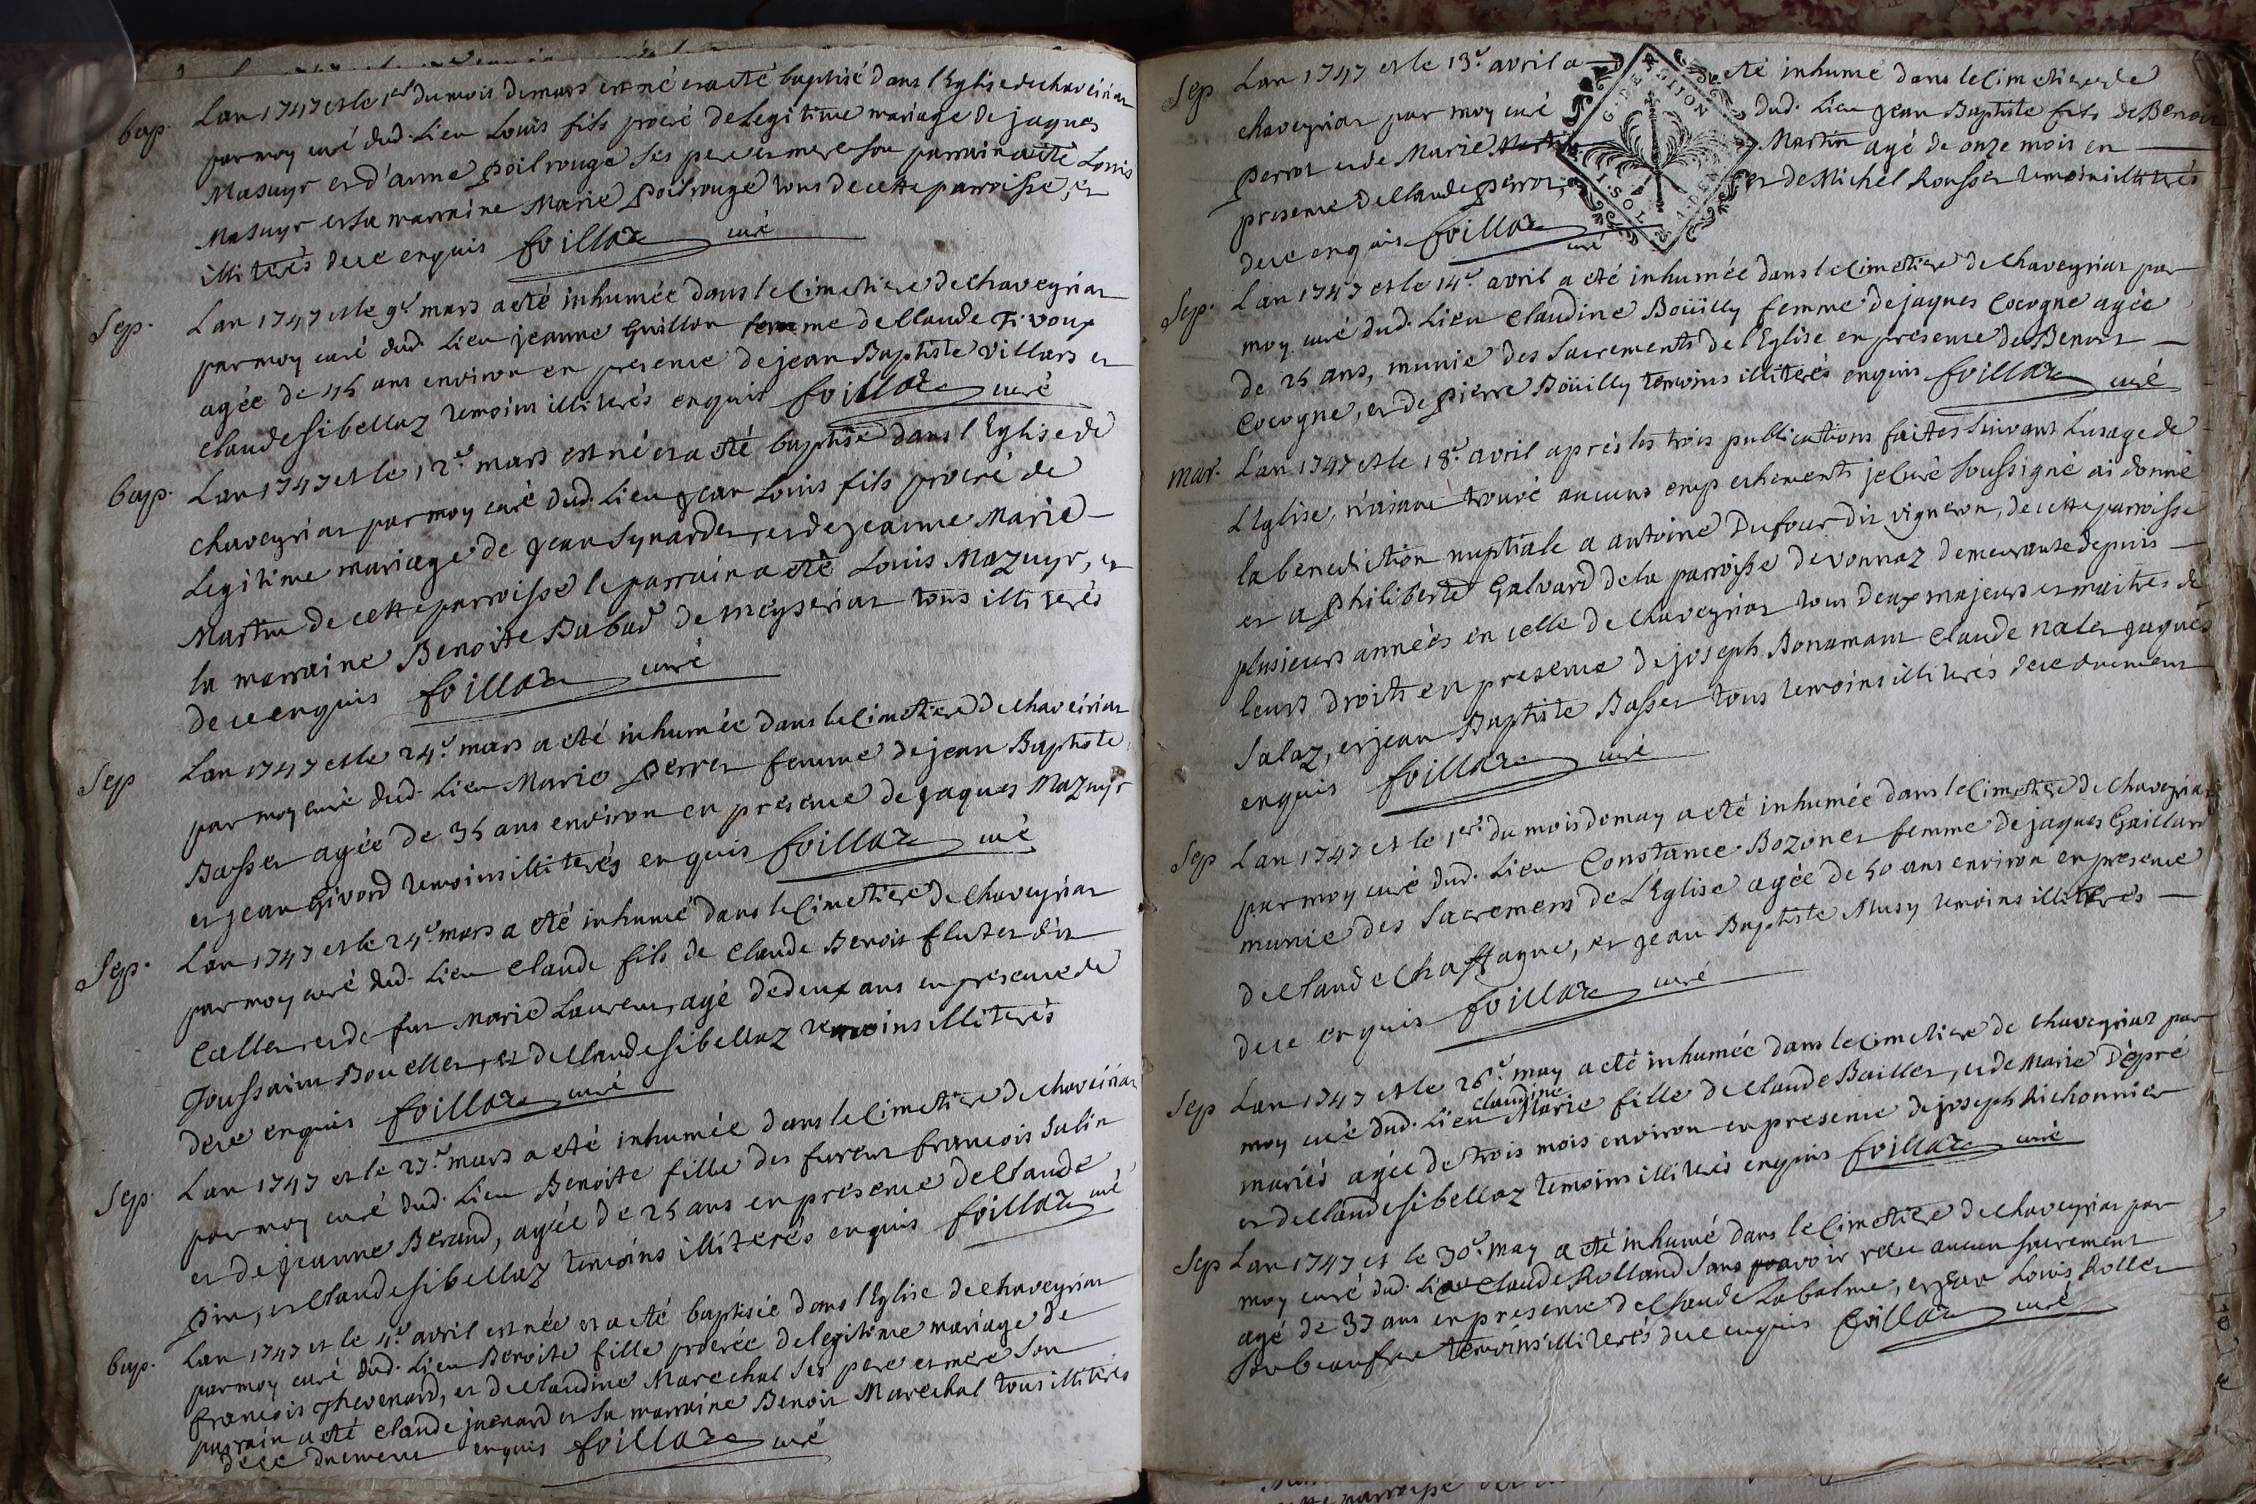 bap. Lan 1747 et le 1er du mois de mars est né et a eté baptisé dans l'Eglise de chaveiriat
par moy curé dud. Lieu Louis fils procré de Legitime mariage de jaques
Masuyr et d'anne poilrouge ses pere et mere son parrain a eté Louis
Masuyr et sa marraine Marie poilrouge tous de cette parroisse, et
illiterés de ce enquis foillaz curé
Sep. Lan 1747 et le 9e mars a eté inhumée dans le Cimetiere de chaveyriat
par moy curé dud. Lieu jeanne Guillon femme de Claude Tivoux
agée de 45 ans environ en presence de jean Baptiste Villars et
claude sibellaz temoins illiterés enquis foillaz curé
bap. Lan 1747 et le 12e mars est né et a eté baptisé dans l'Eglise de
chaveyriat par moy curé dud. Lieu jean Louis fils procré de
Legitime mariage de jean Synardet, et de jeanne Marie
Martin de cette parroisse le parrain a eté Louis Mazuyr, et
la marraine Benoite Babad de meyseriat tous illiterés
de ce enquis foillaz curé
Sep Lan 1747 et le 24e mars a eté inhumée dans le Cimetiere de chaveiriat
par moy curé dud. Lieu Marie perret femme de jean Baptiste
Basset agée de 35 ans environ en presence de jaques Mazuyr
et jean Givord temoins illiterés enquis foillaz curé
Sep. Lan 1747 et le 24e mars a eté inhumé dans le Cimetiere de chaveyriat
par moy curé dud. Lieu claude fils de claude Benoit flutet dit
Collet et de fut marie Laurent, agé de deux ans en presence de
Toussaint Bouellet, et de claude sibellaz temoins illiterés
de ce enquis foillaz curé
Sep. Lan 1747 et le 27e mars a eté inhumée dans le Cimetiere de chaveiriat
par moy curé dud. Lieu Benoite fille des furent francois Sulin
et de jeanne Beraud, agée de 25 ans en presence de claude
pin, et claude sibellaz temoins illiterés enquis foillaz curé
bap. Lan 1747 et le 4e avril est née et a eté baptisée dans l'Eglise de chaveyriat
par moy curé dud. Lieu Benoite fille procrée de legitime mariage de
francois Thevenard, et de claudine Marechal ses pere et mere son
parrain a eté claude juenard et sa marraine Benoit Marechal tous illiterés
de ce duement enquis foillaz curé
Sep Lan 1747 et le 13e avril a eté inhumé dans le Cimetiere de
chaveyriat par moy curé dud. Lieu jean Baptiste fils de Benoit
perrot et de Marie Martin agé de onze mois en
presence de claude perrot, et de Michel Rousset temoins illiterés
de ce enquis foillaz curé
G. DE DIJON
Sep. Lan 1747 et le 14e avril a eté inhumée dans le Cimetiere de chaveyriat par
moy curé dud. Lieu claudine Boüilly femme de jaques Cocogne agée
de 25 ans, munie des Sacrements de l'Eglise en presence de Benoit
Cocogne, et de pierre Boüilly temoins illiterés enquis foillaz curé
mar. L'an 1747 et le 18e avril aprés les trois publications faites suivant l'usage de
L'Eglise, n'aiant trouvé aucuns empechements je curé soussigné ai donné
la benediction nuptiale a antoine Dufour dit vigneron, de cette parroisse
et a philiberte Galvard de la parroisse de vonnaz demeurante depuis
plusieurs années en celle de chaveyriat tous deux majeurs et maitres de
leurs droits en presence de joseph Bonamant claude nalet jaques
Salaz, et jean Baptiste Basset tous temoins illiterés de ce duement
enquis foillaz curé
Sep Lan 1747 et le 1er du mois de may a eté inhumée dans le Cimetiere de chaveyriat
par moy curé dud. Lieu Constance Bozonet femme de jaques Gaillard
munie des Sacremens de L'Eglise agée de 50 ans environ en presence
de claude Chaffagne, et jean Baptiste Musy temoins illiterés
de ce enquis foillaz curé
Sep Lan 1747 et le 26e may a eté inhumée dans le Cimetiere de chaveyriat par
claudine
moy curé dud. Lieu Marie fille de claude Baillet, et de Marie Dépré
mariés agée de trois mois environ en presence de joseph Richonnier
et de claude sibellaz temoins illiterés enquis foillaz curé
Sep Lan 1747 et le 30e may a eté inhumé dans le Cimetiere de chaveyriat par
moy curé dud. Lieu claude Rolland sans avoir reçu aucun sacrement
agé de 37 ans en presence de claude Labalme, et jean Louis Rollet
son beaufrere temoins illiterés de ce enquis foillaz curé